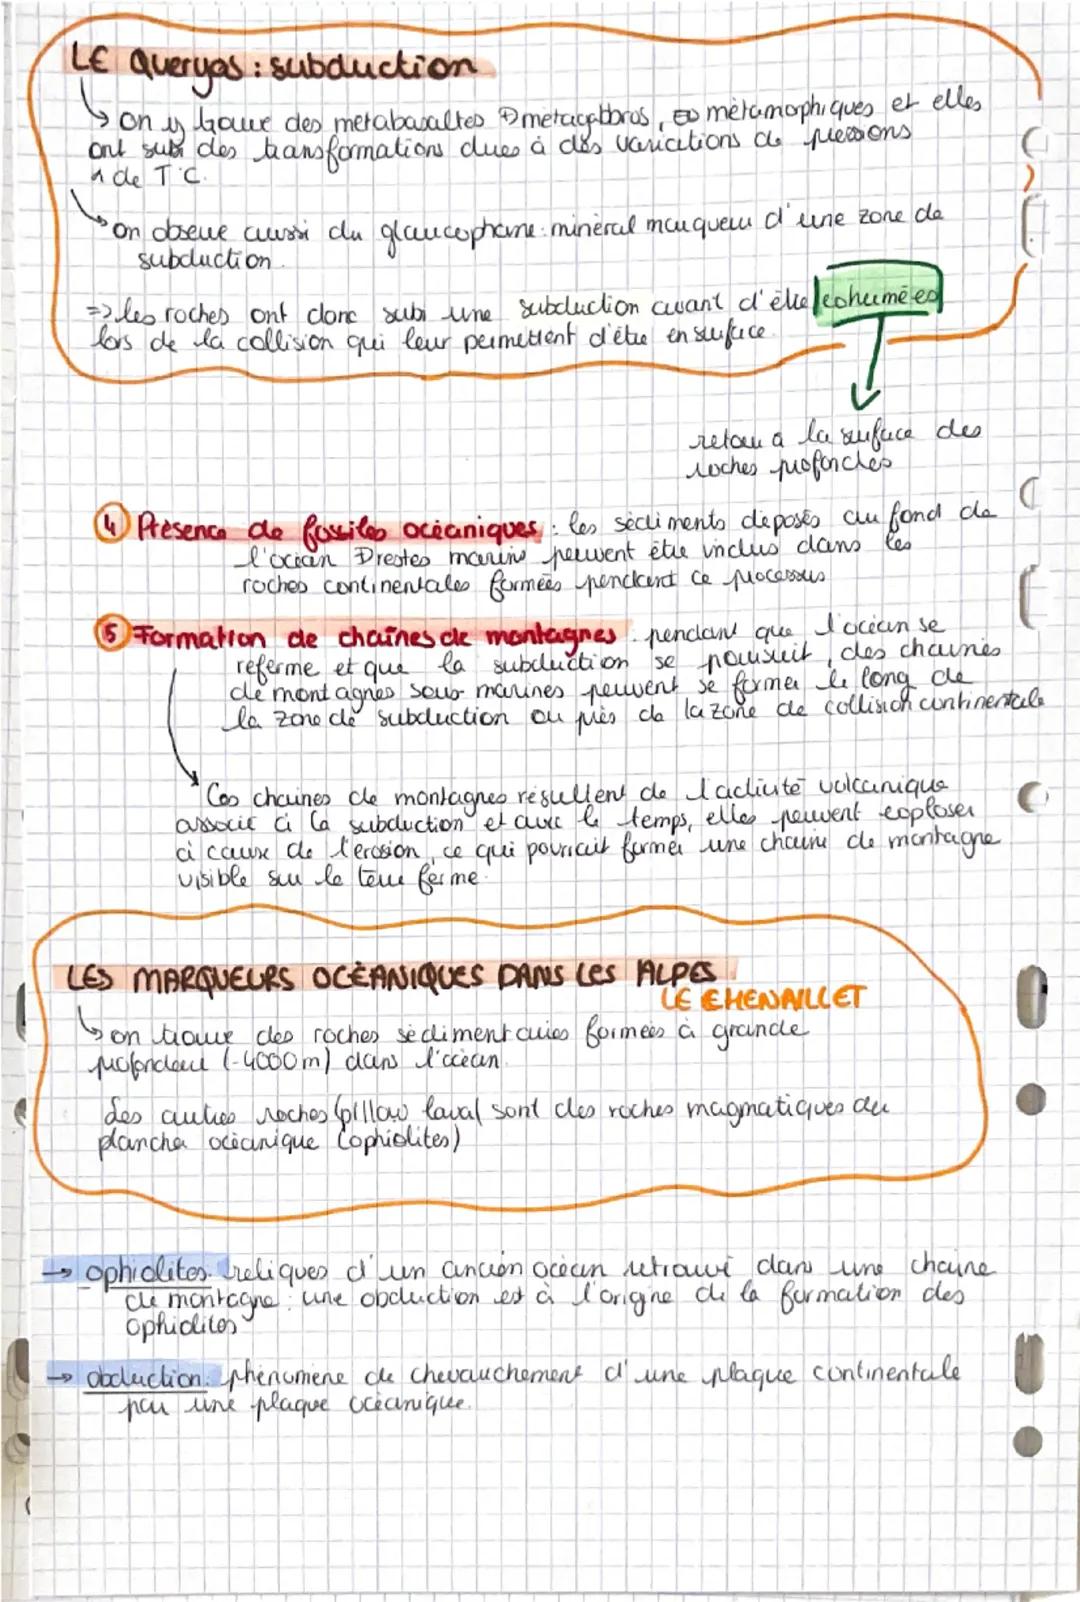 LE Queryas : subduction
on y trouve des metabasaltes & métagabbros, métamorphiques et elles
ont subi des transformations dues à des variations de pressions
& de T°C.
on observe aussi du glaucophane : minéral marqueur d'une zone de
subduction.
=> les roches ont donc subi une subduction avant d'être exhumées
lors de la collision qui leur permettent d'être en surface.
retour à la surface des
roches profondes
④ Présence de fossiles océaniques : les sédiments déposés au fond de
l'océan & restes marins peuvent être inclus dans les
roches continentales formées pendant ce processus
⑤ Formation de chaînes de montagnes : pendant que l'océan se
referme et que la subduction se poursuit, des chaines
de montagnes sous-marines peuvent se former le long de
la zone de subduction ou près de la zone de collision continentale
Ces chaines de montagnes résultent de l'activité volcanique
associé à la subduction et avec le temps, elles peuvent exploser
à cause de l'erosion, ce qui pourrait former une chaine de montagne
visible sur le terre ferme.
LES MARQUEURS OCÉANIQUES DANS LES ALPES
LE CHENAILLET
on trouve des roches sédimentaires formées à grande
profondeur (-4000m) dans l'océan.
Les autres roches (pillow lava) sont des roches magmatiques du
plancher océanique (ophiolites)
→ ophiolites : reliques d'un ancien océan retrouvé dans une chaine
de montagne : une obduction est à l'origine de la formation des
ophiolites
→ obduction : phénomène de chevauchement d'une plaque continentale
par une plaque océanique.